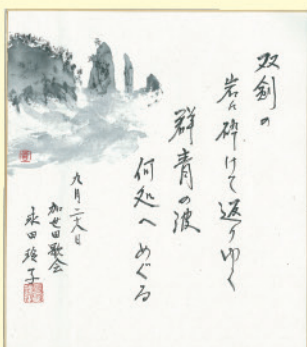 双剣の
岩に砕けて返りゆく
群青の波
何処へめぐる
九月二八日
加世田歌会
永田